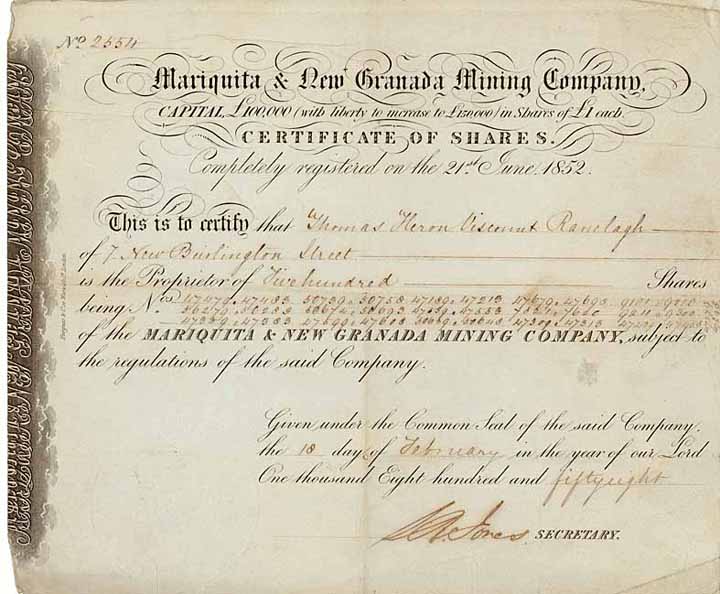 No. 2554
Mariquita & New Granada Mining Company,
CAPITAL, £100,000 (with liberty to increase to £150,000) in Shares of £1 each.
CERTIFICATE OF SHARES.
Completely registered on the 21st June, 1852.
This is to certify that Thomas Heron Viscount Ranelagh
of 7 New Burlington Street
is the Proprietor of Five hundred Shares
being Nos. 47479. 47483 50739. 50758 47189. 47213 47679. 47693
of the MARIQUITA & NEW GRANADA MINING COMPANY, subject to
the regulations of the said Company.
Given under the Common Seal of the said Company,
the 18 day of February in the year of our Lord
One thousand Eight hundred and fiftyeight
Jones SECRETARY.